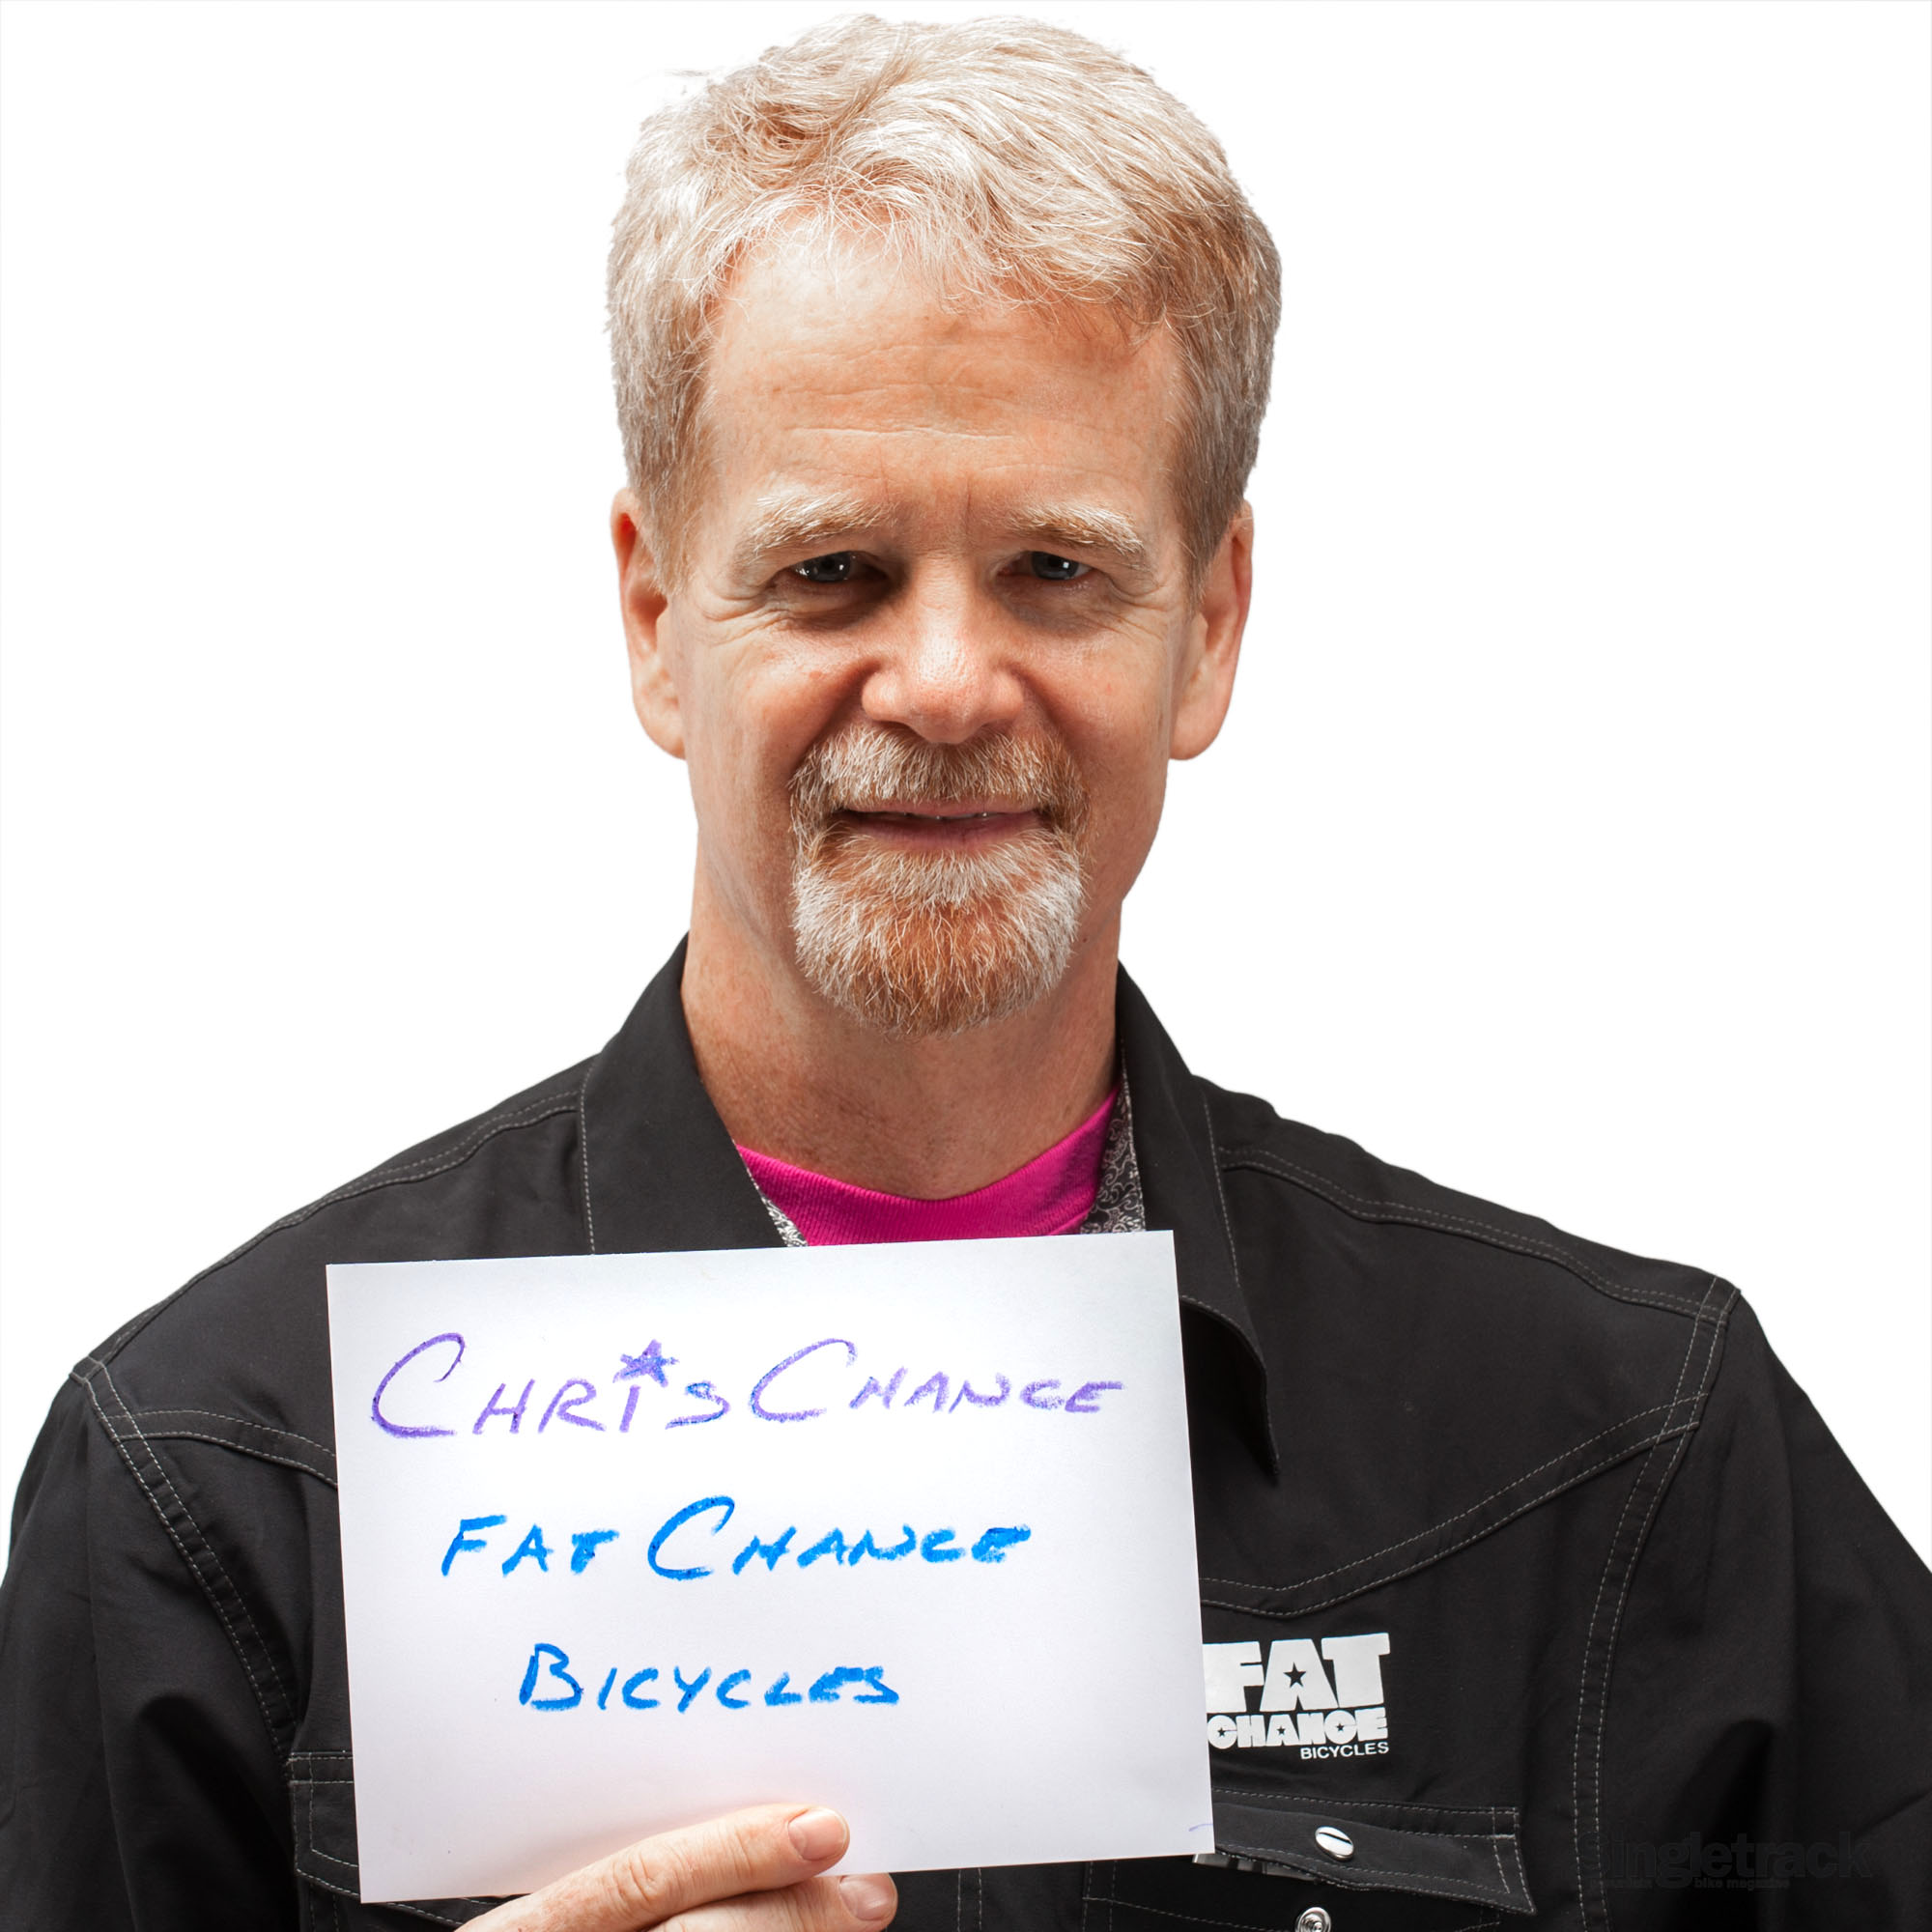 CHRIS CHANCE
FAT CHANCE
BICYCLES
FAT
CHANCE
BICYCLES
singletrack
bike magazine